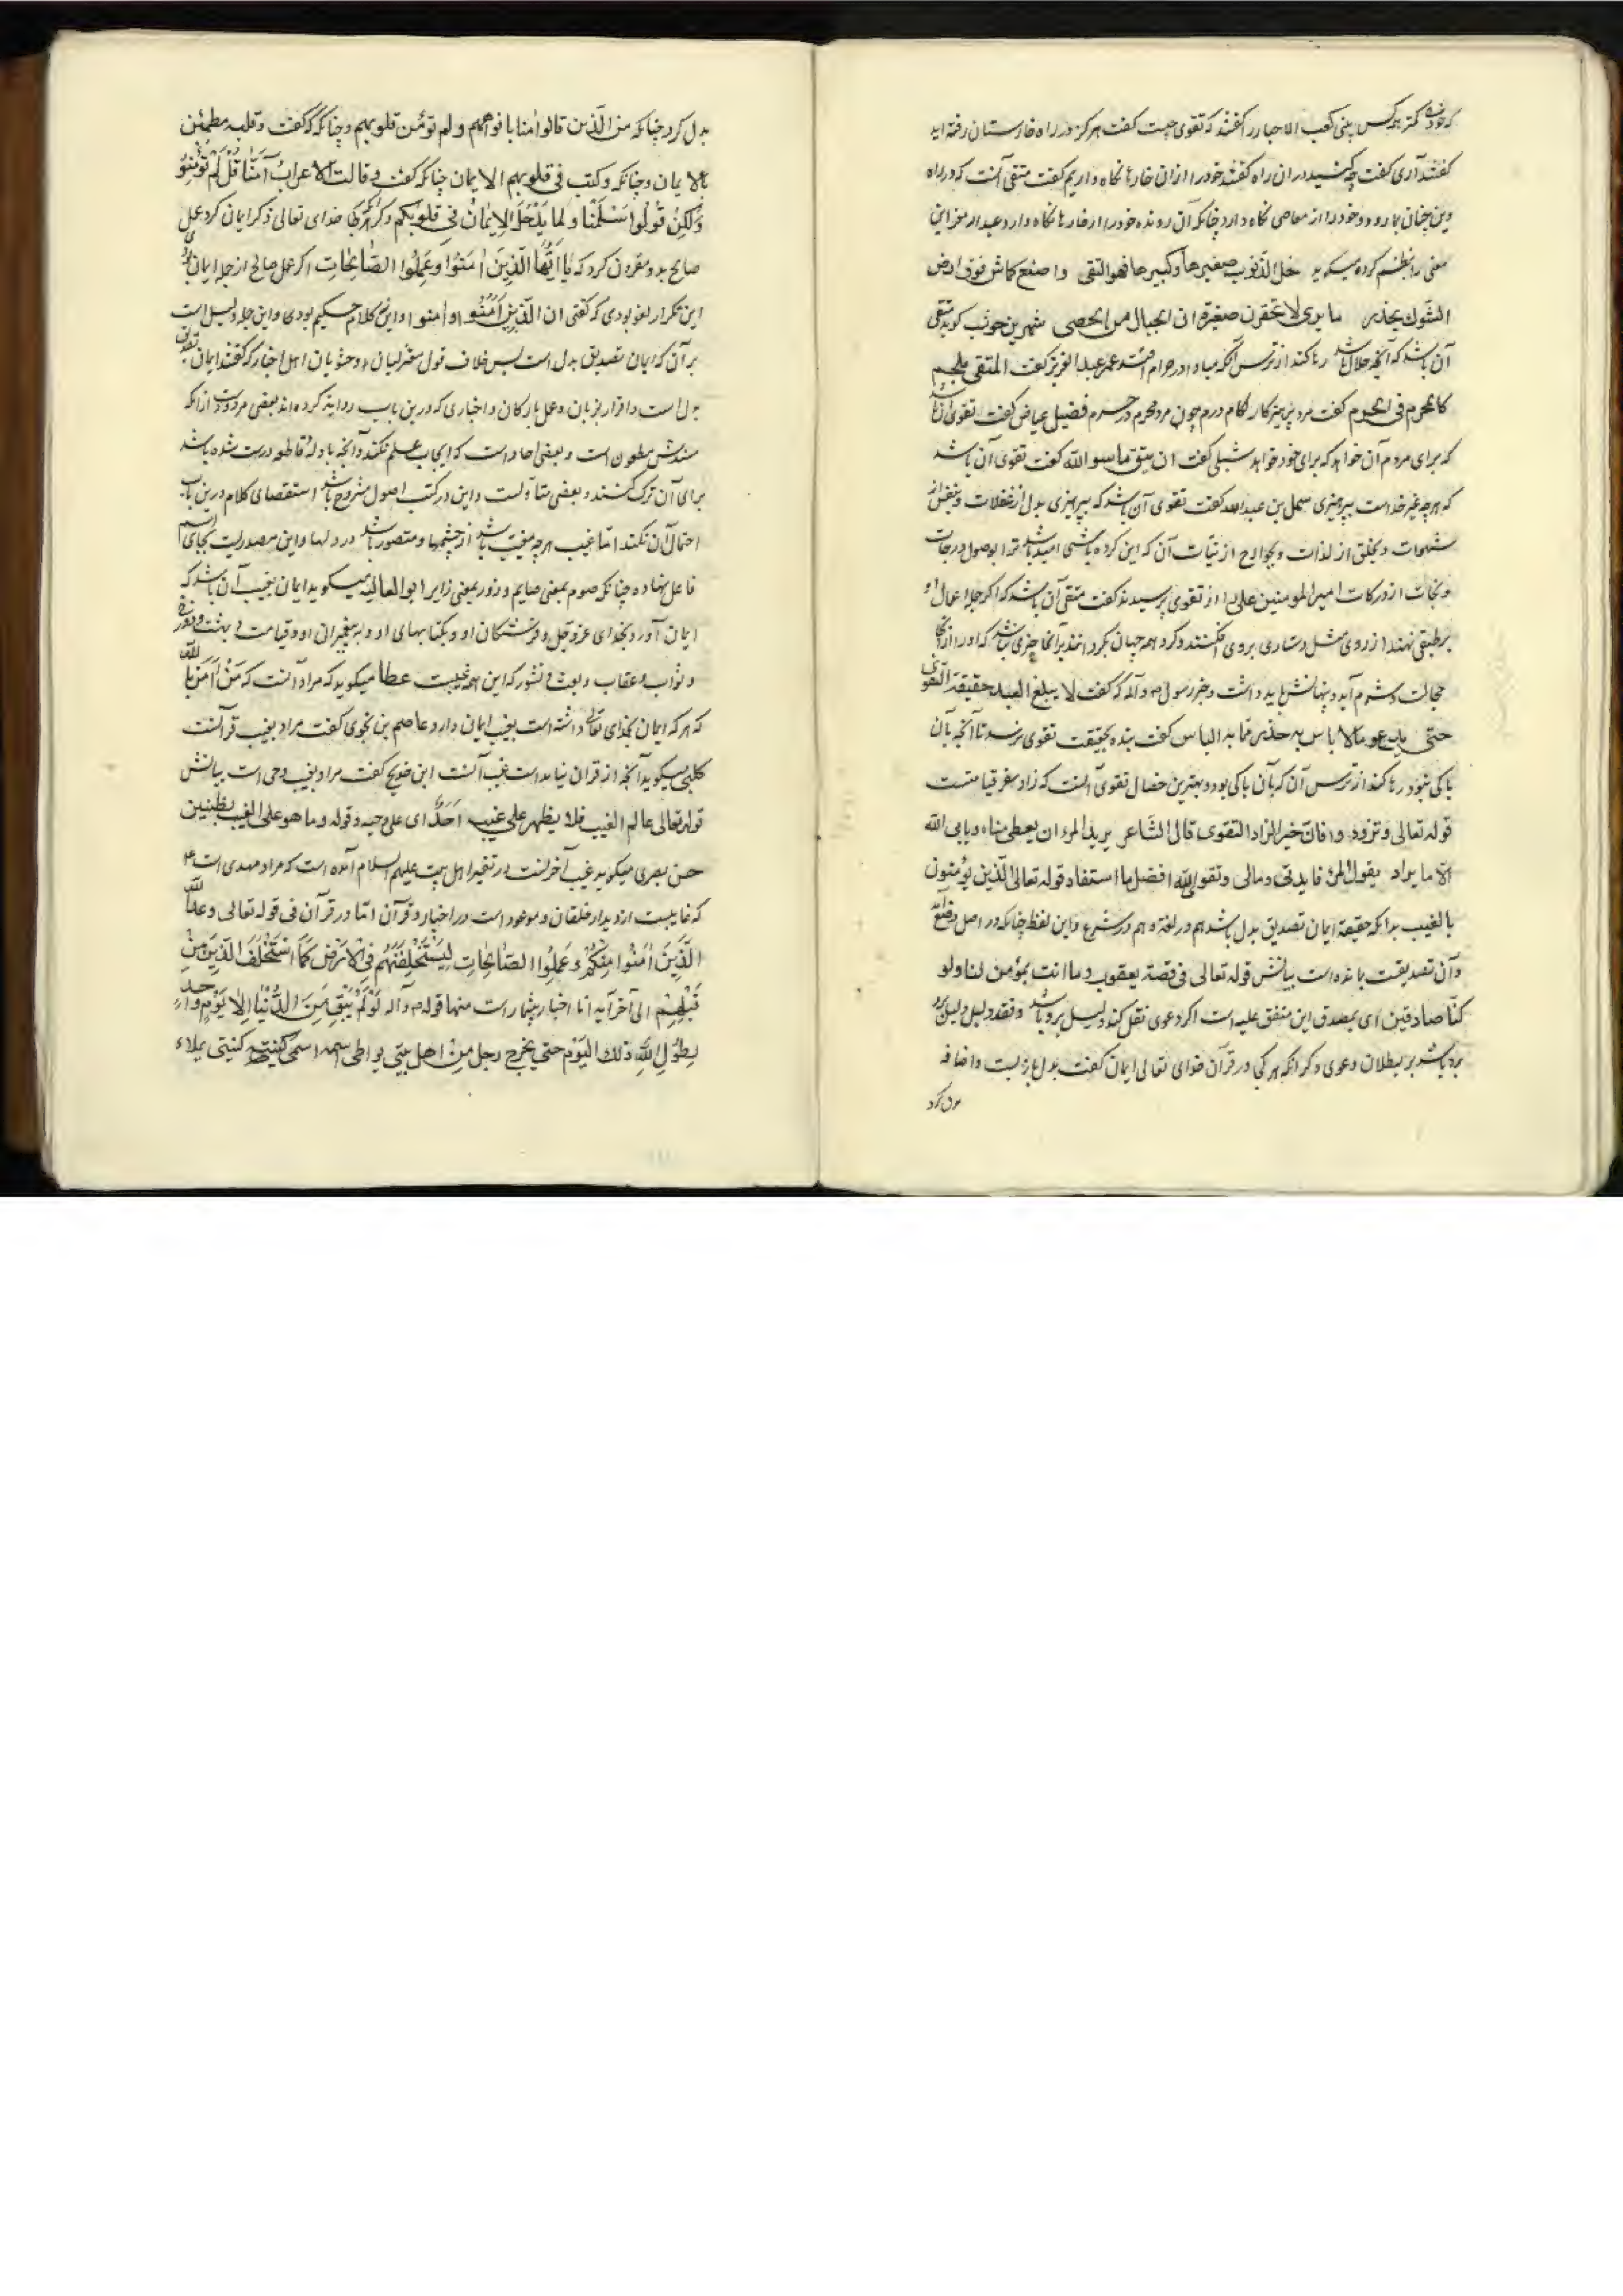 که خود را کمتر کس بینی کعب الاحبار را گفتند که تقوی چیست گفت هرگز در راه خارستان رفته اید
گفتند آری گفت چه کنید در ان راه گفتند خود را از ان خارها نگاه داریم گفت متقی آنست که در راه
دین چنان برود و خود را از معاصی نگاه دارد چنانکه آن رونده خود را از خارها نگاه دارد و عبد المعز این
معنی را نظم کرده میگوید خل الذنوب صغیرها وکبیرها فهو التقی واصنع کماش فوق ارض
الشوک یحذر ما یری لا تحقرن صغیرة ان الجبال من الحصی شهر بن حوشب گوید متقی
آن باشد که آنچه حلال باشد رها کند از ترس آنکه مبادا در حرام افتد عمر عبد العزیز گفت المتقی ملجم
کالمحرم فی الحرم گفت مرد پرهیزکار لگام دارم چون مرد محرم در حرم فضیل عیاض گفت تقوی آن باشد
که برای مردم آن خواهد که برای خود خواهد شبلی گفت ان یتق ما سوا الله گفت تقوی آن باشد
که هرچه غیر خداست بپرهیزی سهل بن عبد الله گفت تقوی آن باشد که بپرهیزی بدل از غفلات و بنفس از
شهوات و بحلق از لذات و بجوارح از سیئات آن که این کرده باشی امید باشد ترا بوصول درجات
و نجات از درکات امیر المومنین علی را از تقوی پرسیدند گفت متقی آن باشد که اگر جمله اعمال او
بر طبقی نهند از روی مثل و ستاری بروی افکنند و گرد همه جهان بگردانند بر آنجا چیزی نباشد که او را از آن
خجالت و شرم آید و پنهانش باید داشت و خبر رسول ص وآله که گفت لا یبلغ العبد حقیقة التقوی
حتی یدع ما لا باس به حذرا مما به الباس گفت بنده بحقیقت تقوی نرسد تا آنچه بآن
باکی نبود رها کند از ترس آن که بآن باکی بود و بهترین خصال تقوی آنست که زاد سفر قیامتست
قوله تعالی وتزودوا فان خیر الزاد التقوی قال الشاعر یرید المرء ان یعطی مناه ویابی الله
الا ما یراد یقول المرء فایدتی ومالی وتقوی الله افضل ما استفاد قوله تعالی الذین یؤمنون
بالغیب بدانکه حقیقة ایمان تصدیق بدل باشد هم در لغة و هم در شرع و این لفظ چنانکه در اصل وضع آمد
و آن تصدیقست بمانده است بیانش قوله تعالی فی قصة یعقوب وما انت بمؤمن لنا ولو
کنا صادقین ای بمصدق این متفق علیه است اگر دعوی نقل کند دلیل برو باشد و فقد دلیل دلیل بود
بر بطلان دعوی و دیگر آنکه هر کجا در قرآن خدای تعالی ایمان گفت بدل باز بست و اضافه
بدل کرد
بدل کرد چنانکه من الذین قالوا امنا بافواههم ولم تؤمن قلوبهم و چنانکه گفت وقلبه مطمئن
بالایمان و چنانکه وکتب فی قلوبهم الایمان چنانکه گفت وقالت الاعراب آمنا قل لم تؤمنوا
ولکن قولوا اسلمنا ولما یدخل الایمان فی قلوبکم و دیگر هر کجا خدای تعالی ذکر ایمان کرد عمل
صالح بدو مقرون کرد که یا ایها الذین امنوا وعملوا الصالحات اگر عمل صالح از جمله ایمان بودی
این تکرار لغو بودی که گفتی ان الذین آمنوا وامنوا و این نه کلام حکیم بودی و این جمله دلیل است
بر آن که ایمان تصدیق بدل است پس خلاف قول معتزلیان و حشویان اهل اخبار که گفتند ایمان تصدیق
بدلست و اقرار بزبان و عمل بارکان و اخباری که درین باب روایة کرده اند بعضی مردودست از آنکه
سندش مطعون است و بعضی احاد است که ایجاب علم نکند و آنچه بادله قاطعه درست شده باشد
برای آن ترک نکنند و بعضی متأولست و این در کتب اصول مشروح باشد استقصای کلام درین باب
احتمال آن نکند اما غیب هرچه مغیب باشد از چشمها و متصور باشد در دلها و این مصدریست بجای اسم
فاعل نهاده چنانکه صوم بمعنی صایم و زور بمعنی زایر ابو العالیه میگوید ایمان بغیب آن باشد که
ایمان آورد بخدای عز وجل و فرشتگان او و بکتابهای او و به پیغمبران او و قیامت و بهشت و دوزخ
و ثواب و عقاب و بعث و نشور که این همه غیبست عطا میگوید که مراد آنست که من امن بالله
که هر که ایمان بخدای تعالی داشته است بغیب ایمان دارد عاصم بن بجوی گفت مراد بغیب قرآنست
کلبی میگوید آنچه از قران نیامده است غیب آنست ابن ضریح گفت مراد بغیب وحی است بیانش
قوله تعالی عالم الغیب فلا یظهر علی غیبه احدا ای علی وحیه وقوله وما هو علی الغیب بظنین
حسن بصری میگوید غیب آخرتست در تفسیر اهل بیت علیهم السلام آمده است که مراد مهدی است ع
که غایبست از دیدار خلقان و موعود است در اخبار و قرآن اما در قرآن فی قوله تعالی وعد الله
الذین امنوا منکم وعملوا الصالحات لیستخلفنهم فی الارض کما استخلف الذین من
قبلهم الی آخر آیه اما اخبار بیشمار است منها قوله ص وآله لو لم یبق من الدنیا الا یوم واحد
لطول الله ذلک الیوم حتی یخرج رجل من اهل بیتی یواطی اسمه اسمی کنیته کنیتی یملاء